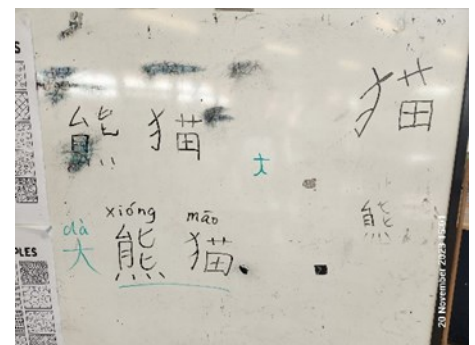 S
熊猫
猫
大
熊
dà xióng māo
大熊猫.
PLES
20 November 2023